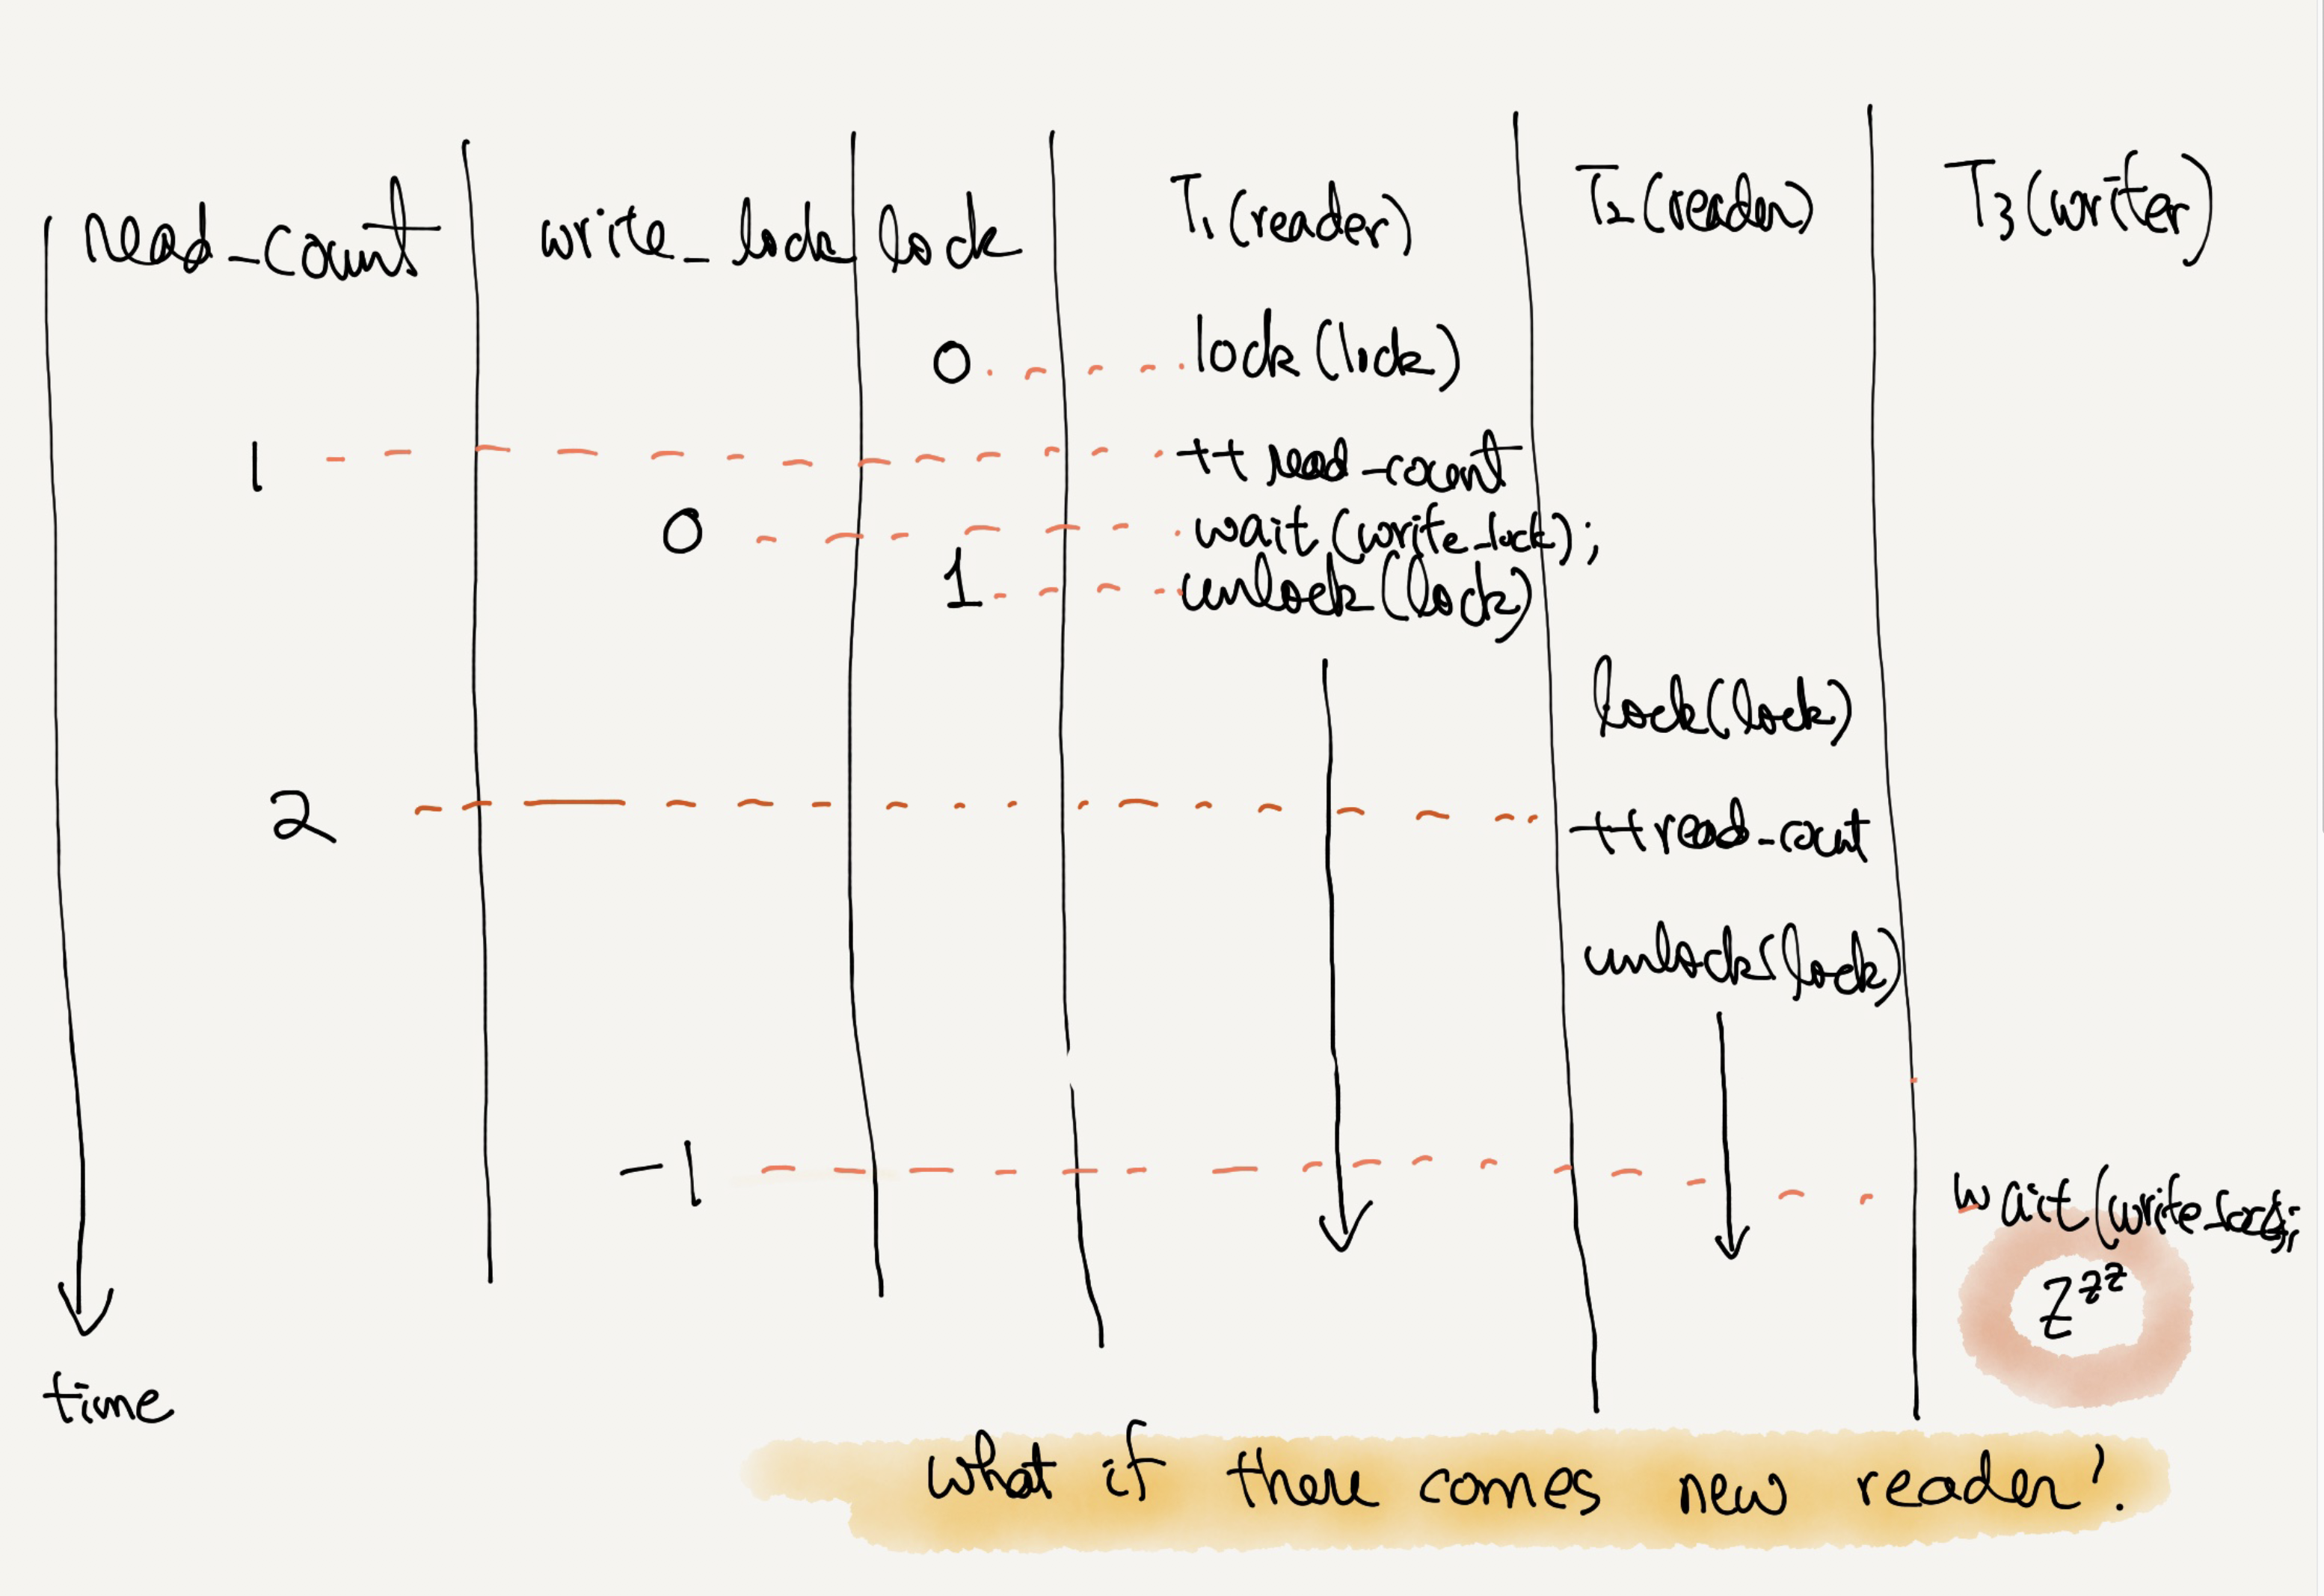 read_count write_lock lock T1 (reader) T2 (reader) T3 (writer)
0 lock (lock)
1 ++ read_count
0 wait (write_lock);
1 unlock (lock)
lock (lock)
2 ++read_count
unlock (lock)
-1 wait (write_lock);
Zzz
time
what if there comes new reader?